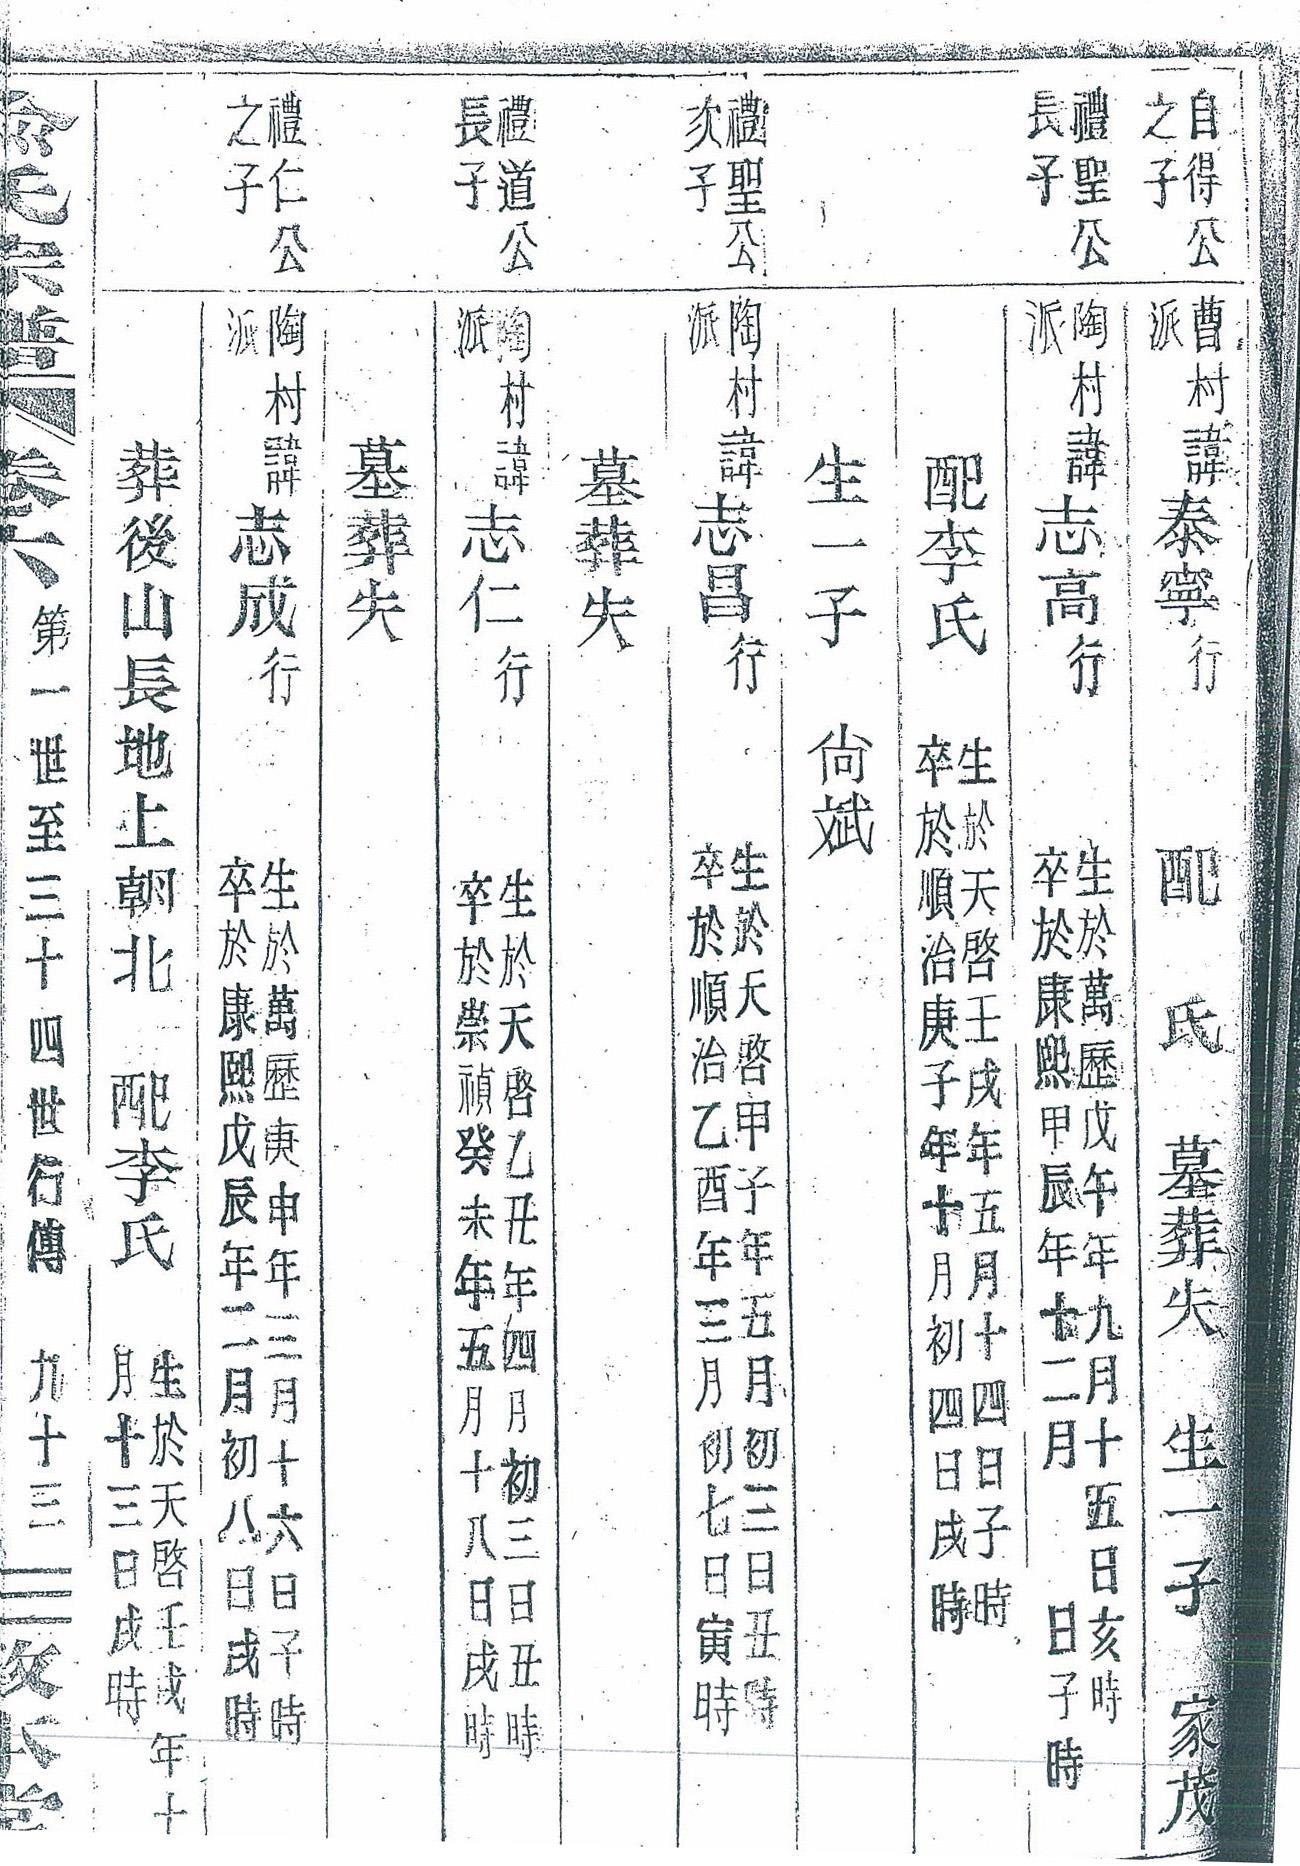 自得公
之子
曹村
派
諱泰寧行 配 氏 墓葬失 生一子 家茂
禮聖公
長子
陶村
派
諱志高行
生於萬歷戊午年九月十五日亥時
卒於康熙甲辰年十二月 日子時
配李氏
生於天啓壬戌年五月十四日子時
卒於順治庚子年十月初四日戌時
生一子 尙斌
禮聖公
次子
陶村
派
諱志昌行
生於天啓甲子年五月初三日丑時
卒於順治乙酉年三月初七日寅時
墓葬失
禮道公
長子
陶村
派
諱志仁行
生於天啓乙丑年四月初三日丑時
卒於崇禎癸未年五月十八日戌時
墓葬失
禮仁公
之子
陶村
派
諱志成行
生於萬歷庚申年三月十六日子時
卒於康熙戊辰年二月初八日戌時
葬後山長地上朝北 配李氏
生於天啓壬戌年十
月十三日戌時
氏宗譜 卷六 第一世至三十四世行傳 九十三